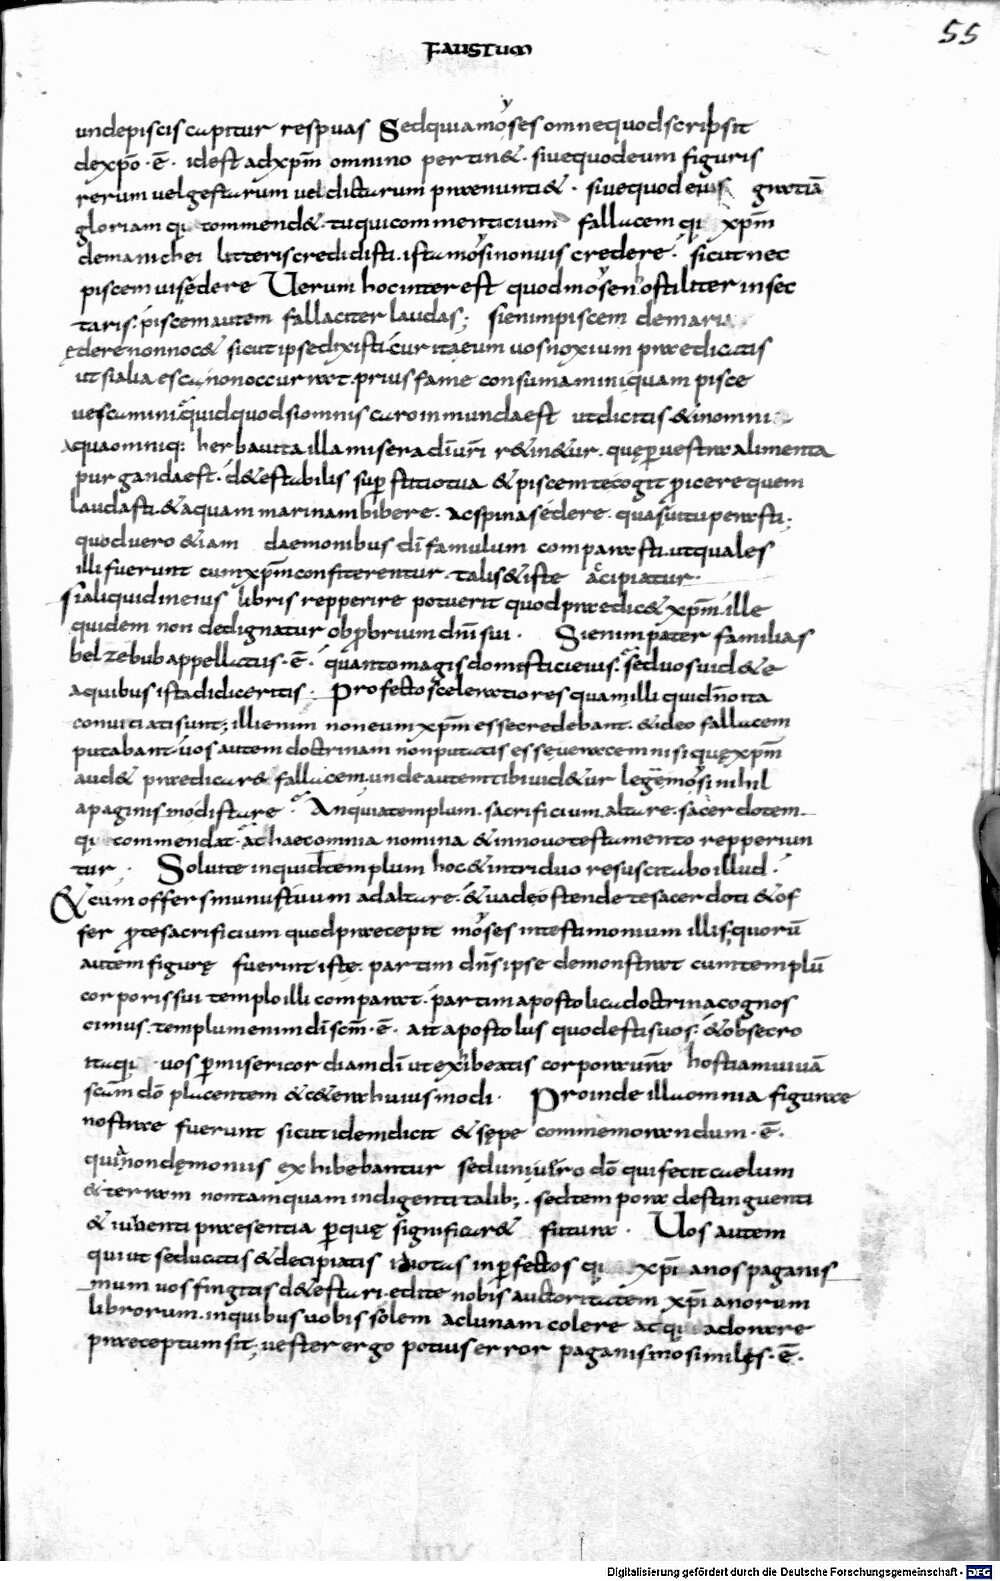 FAUSTUM
55
unde piscis capitur respuas Sed quia moyses omne quod scripsit
de xp̄o · ē · id est ad xp̄m omnino pertin& · siue quod eum figuris
rerum uel gestarum uel dictarum praenunti& · siue quod eius gratiā
gloriam q; commend& · tu qui commenticium fallacem q; xp̄m
de manichei litteris credidisti · ista moysi non uis credere · sicut nec
piscem uis edere Uerum hoc interest quod moysen hostiliter insec
taris · piscem autem fallaciter laudas; si enim piscem de maria
edere non noc& sicut ipse dixisti cur ita eum uos noxium praedicatis
ut si alia esca non occurrat · prius fame consumamini quam pisce
uescamini quid quod si omnis caro inmunda est ut dicitis & in omni
aqua omniq; herba uita illa misera dī uri r&in&ur · quę p̄ uestra alimenta
purganda est · d&estabilis sup̄stitio tua & piscem te cogit proicere quem
laudasti · & aquam marinam bibere · ac spinas edere · quas uituperasti;
quod uero &iam daemonibus dī famulum comparasti · ut quales
illi fuerunt cum xp̄m confiterentur · talis & iste accipiatur ·
si aliquid in eius libris repperire potuerit quod praedic& xp̄m · ille
quidem non dedignatur obprobrium dn̄i sui · Si enim pater familias
belzebub appellatus · ē · quanto magis domestici eius · sed uos uid&e
a quibus ista didiceritis · Profecto sceleratiores quam illi qui dn̄o ita
conuitiati sunt; illi enim non eum xp̄m esse credebant · & ideo fallacem
putabant · uos autem doctrinam non putatis esse ueracem nisi quę xp̄m
aud& praedicare fallacem · unde autem tibi uid&ur legem moysi nihil
a paganismo distare An quia templum · sacrificium · altare · sacerdotem ·
q; commendat · at haec omnia nomina & in nouo testamento repperiun
tur · Soluite inquid templum hoc & in triduo resuscitabo illud ·
& cum offers munus tuum ad altare · & uade ostende te sacerdoti & of
fer pro te sacrificium quod praecepit moyses in testimonium illis · quorū
autem figurę fuerint iste · partim dn̄s ipse demonstrat cum templū
corporis sui templo illi comparat · partim apostolica doctrina cognos
cimus · templum enim dī scm̄ · ē · ait apostolus quod estis uos · & obsecro
itaq; uos p̄ misericordiam dī ut exhibeatis corpora ur̄a hostiam uiuā
scam dō placentem & c&era huius modi · Proinde illa omnia figurae
nostrae fuerunt sicut idem dicit & sępe commemorandum · ē ·
quia non dęmoniis exhibebantur sed uni uero dō qui fecit caelum
& terram non tamquam indigenti talib; · sed tempora destinguenti
& iubenti praesentia p̄ quę significar& futura · Uos autem
qui ut seducatis & decipiatis idiotas inp̄fectos q; xp̄ianos paganis
mum uos fingitis d&estari · edite nobis auctoritatem xp̄ianorum
librorum · in quibus uobis solem ac lunam colere atq; adorare
praeceptum sit; uester ergo potius error paganismo similis · ē ·
Digitalisierung gefördert durch die Deutsche Forschungsgemeinschaft - DFG